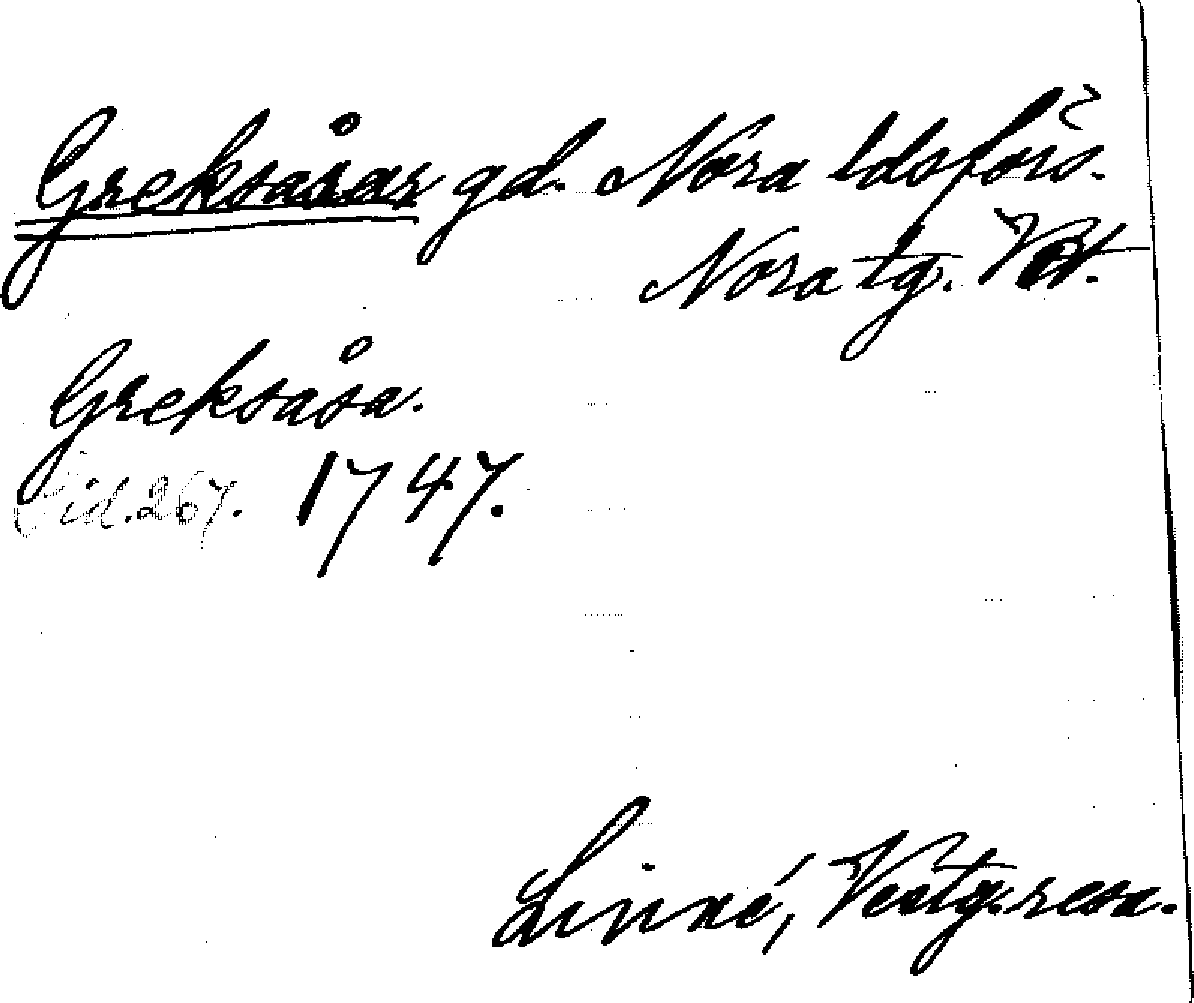 Greksåsar gd. Nora ldsförs.
Nora tg.
Greksåsa.
Sid. 267. 1747.
Linné, Vestg. resa.